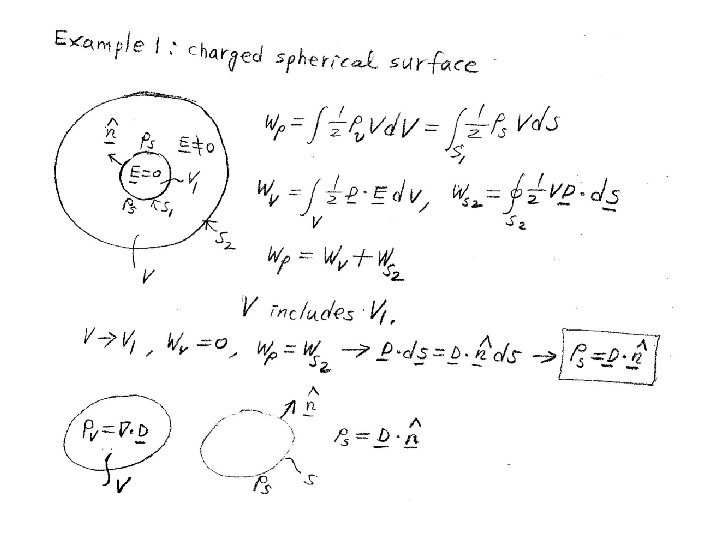 Example 1: charged spherical surface
n̂ ρs E≠0
E=0 V₁
ρs S₁
S₂
V
Wρ = ∫ ½ ρv V dV = ∫S₁ ½ ρs V ds
Wv = ∫V ½ D·E dv, Ws₂ = ∮S₂ ½ V D·ds
Wρ = Wv + Ws₂
V includes V₁.
V→V₁, Wv = 0, Wρ = Ws₂ → D·ds = D·n̂ ds → ρs = D·n̂
ρv = ∇·D
V
n̂
ρs S
ρs = D·n̂